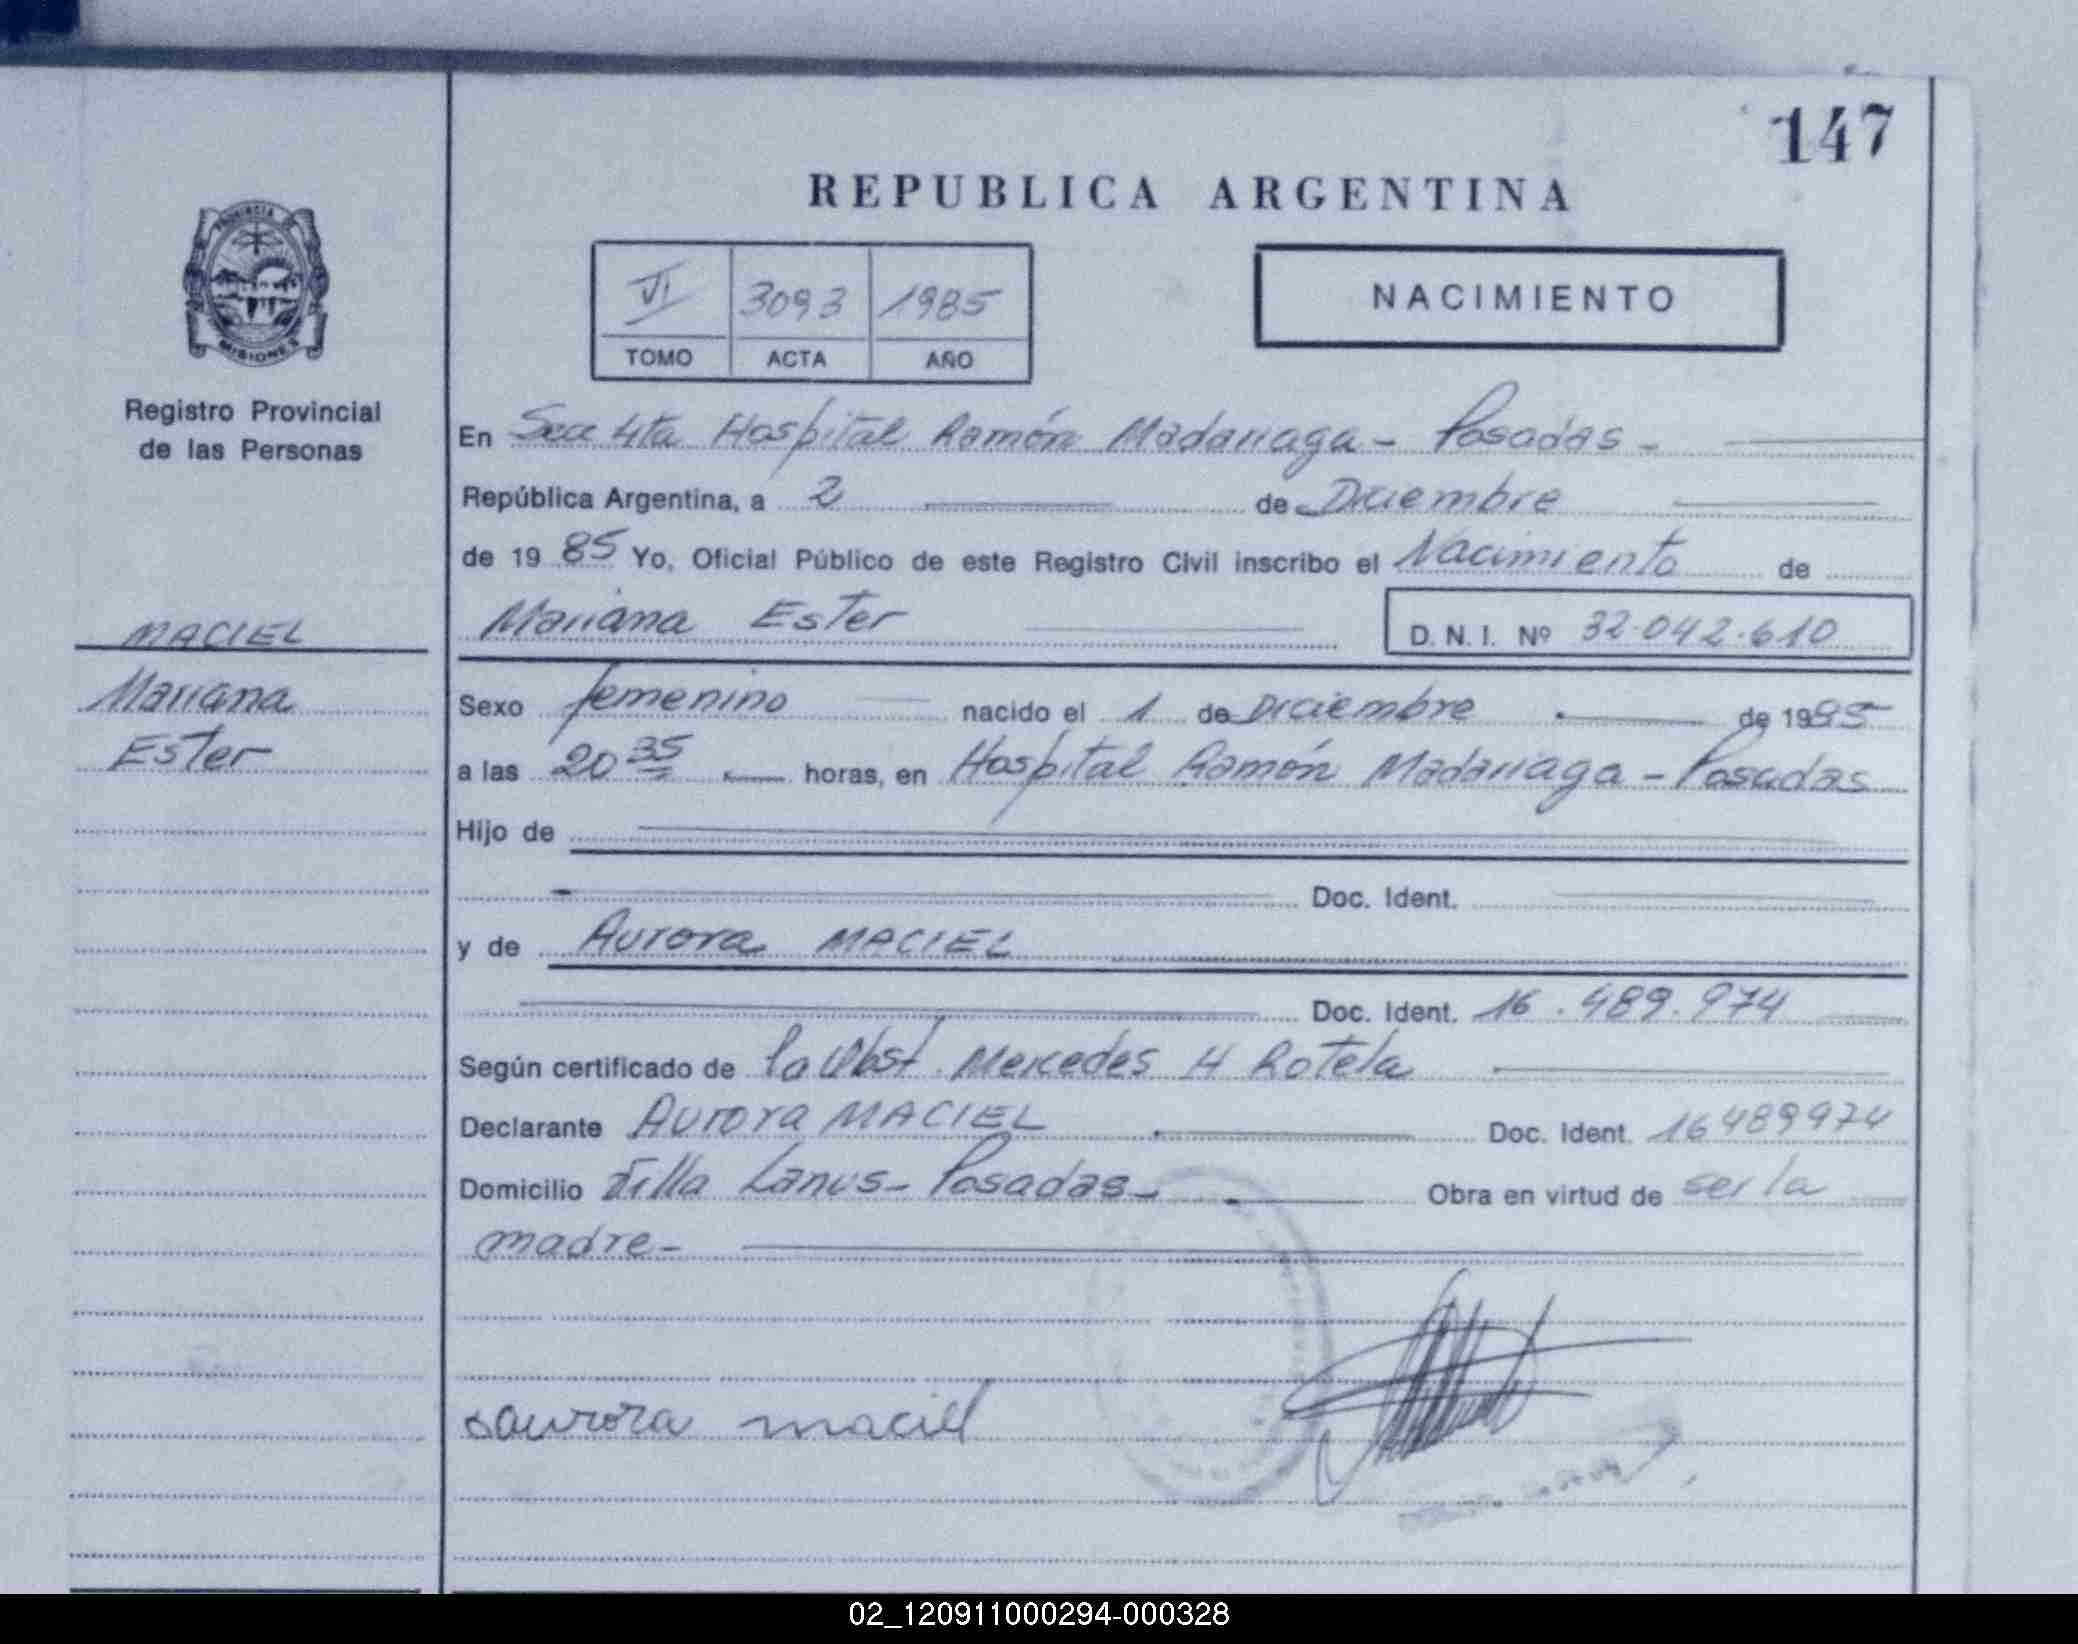 147
REPUBLICA ARGENTINA
PROVINCIA
MISIONES
Registro Provincial
de las Personas
VI 3093 1985
TOMO ACTA AÑO
NACIMIENTO
En Secc 4ta Hospital Ramón Madariaga - Posadas -
República Argentina, a 2 de Diciembre
de 19 85 Yo, Oficial Público de este Registro Civil inscribo el Nacimiento de
Mariana Ester D. N. I. Nº 32.042.610
MACIEL
Mariana
Ester
Sexo femenino nacido el 1 de Diciembre de 1985
a las 20 35 horas, en Hospital Ramón Madariaga - Posadas
Hijo de
Doc. Ident.
y de Aurora MACIEL
Doc. Ident. 16.489.974
Según certificado de la Obst. Mercedes H Rotela
Declarante Aurora MACIEL Doc. Ident. 16489974
Domicilio Villa Lanus - Posadas - Obra en virtud de ser la
madre -
aurora maciel
02_120911000294-000328